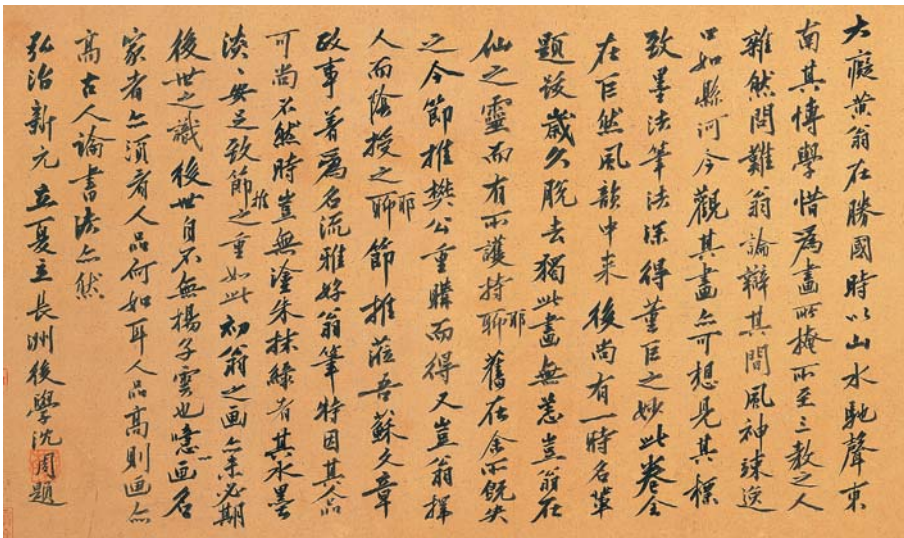 大癡黄翁在勝國時以山水馳聲東
南其博學惜爲畫所掩所至三教之人
雜然問難翁論辯其間風神竦逸
口如懸河今觀其畫亦可想見其標
致墨法筆法深得董巨之妙此卷全
在巨然風韻中來後尚有一時名輩
題跋歲久脫去獨此畫無恙豈翁在
仙之靈而有所護持聊耶舊在余所既失
之今節推樊公重購而得又豈翁擇
人而陰授之聊耶節推蒞吾蘇文章
政事著爲名流雅好翁筆特因其人品
可尚不然時豈無塗朱抹綠者其水墨
淡〻安足致節推之重如此初翁之画亦未必期
後世之識後世自不無揚子雲也噫以画名
家者亦須看人品何如耳人品高則画亦
高古人論書法亦然
弘治新元立夏立長洲後學沈周題